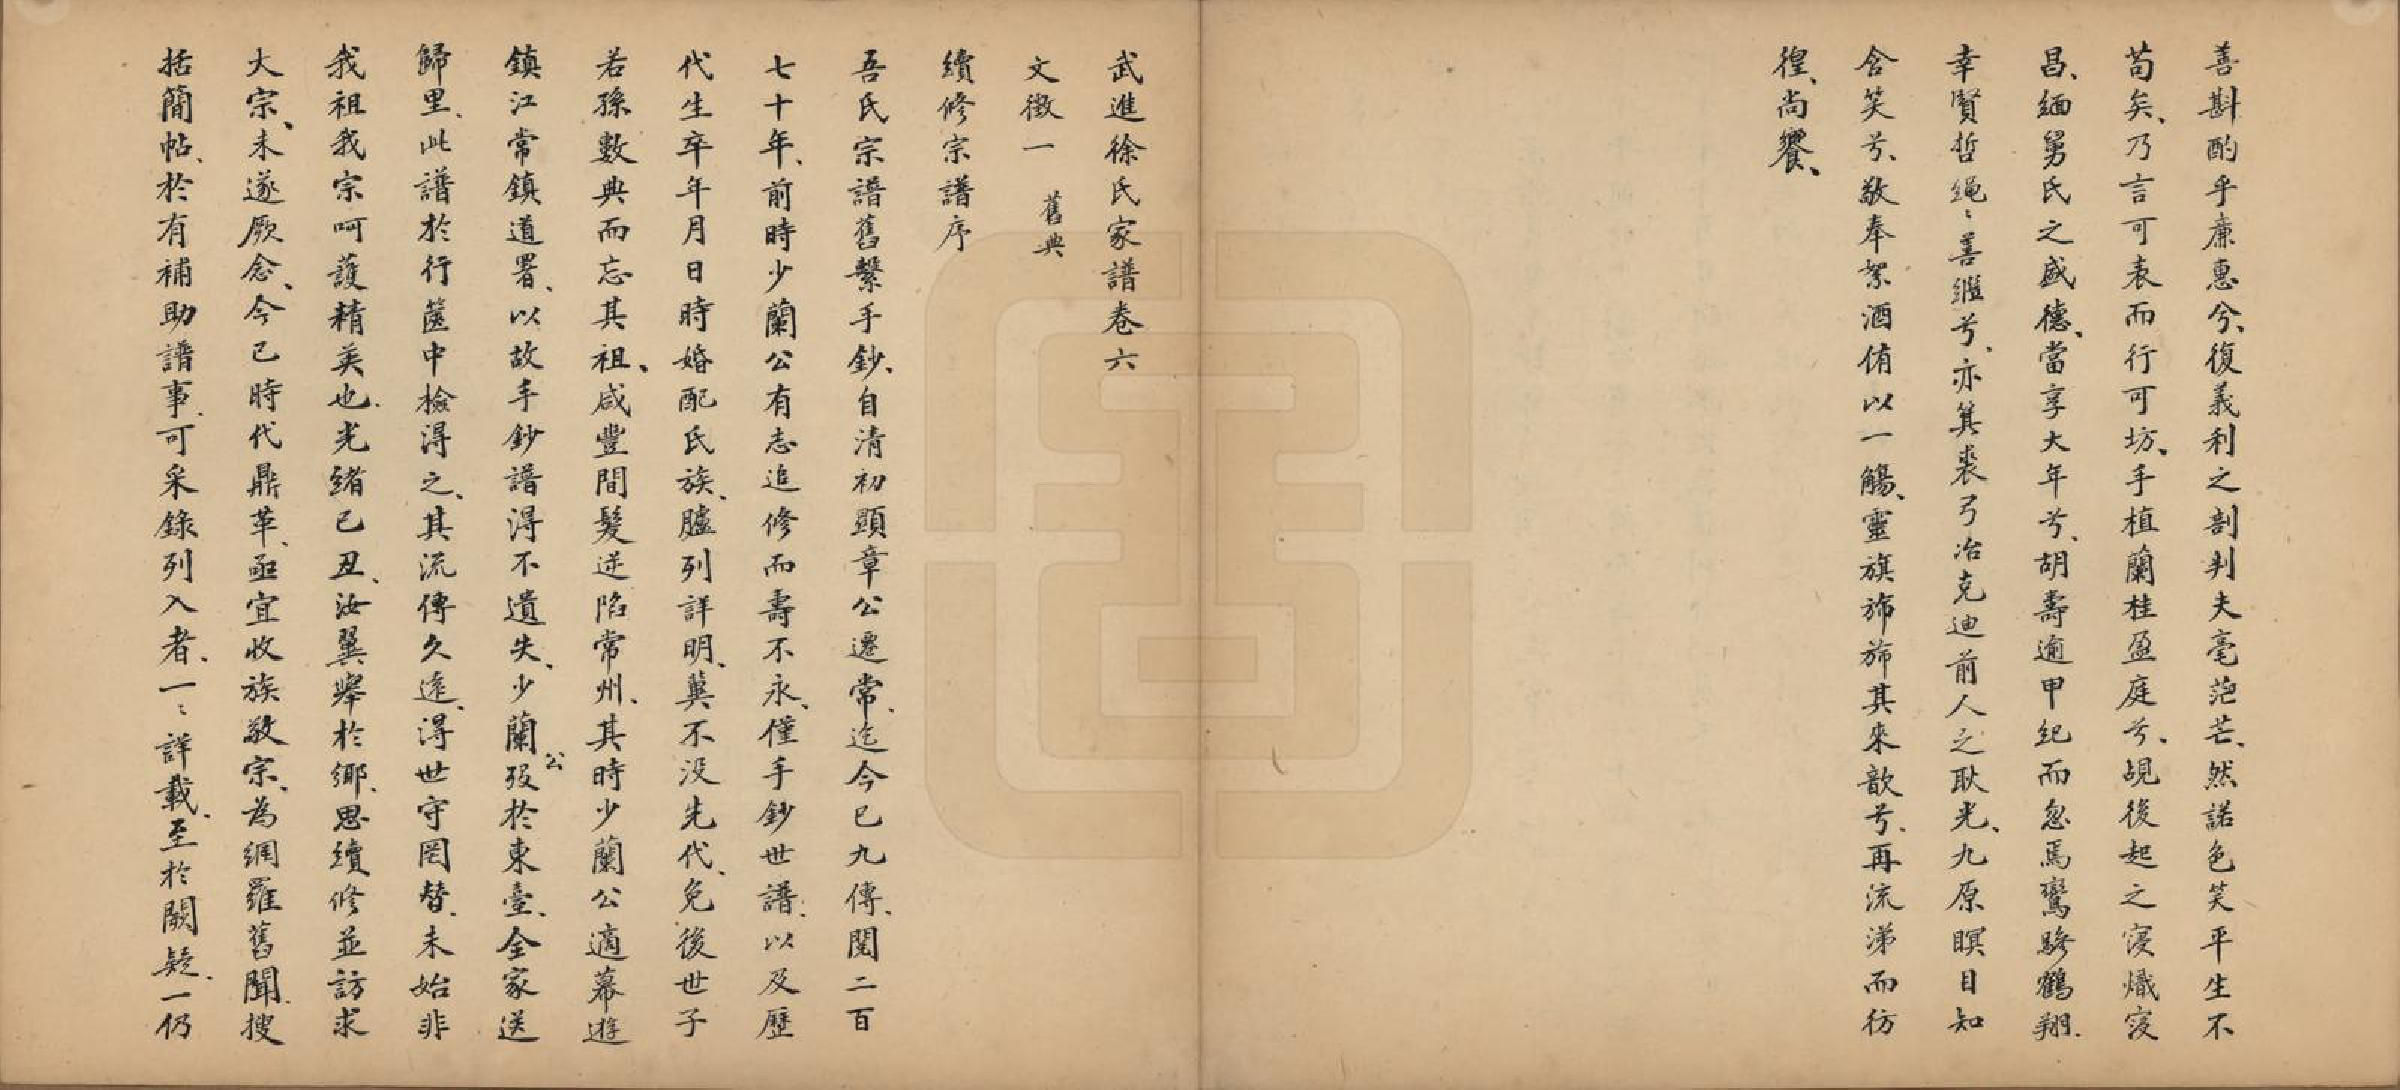 善斟酌乎廉惠兮、復義利之剖判夫毫茫芒、然諾色笑平生不
苟矣、乃言可表而行可坊、手植蘭桂盈庭兮、覘後起之寖熾寖
昌、緬舅氏之盛德、當享大年兮、胡壽逾甲紀而忽焉鸞驂鶴翔、
幸賢哲繩〻善繼兮、亦箕裘弓冶克迪前人之耿光、九原瞑目知
含笑兮、敬奉絮酒侑以一觴、靈旗斾斾其來歆兮、再流涕而彷
徨、尚饗、
武進徐氏家譜卷六
文徵一 舊典
續修宗譜序
吾氏宗譜舊繫手鈔、自清初顯章公遷常、迄今已九傳、閱二百
七十年、前時少蘭公有志追修而壽不永、僅手鈔世譜、以及歷
代生卒年月日時婚配氏族、臚列詳明、冀不没先代、免後世子
若孫數典而忘其祖、咸豐間髮逆陷常州、其時少蘭公適幕遊
鎮江常鎮道署、以故手鈔譜得不遺失、少蘭公歿於東臺、全家送
歸里、此譜於行篋中檢得之、其流傳久遠、得世守罔替、未始非
我祖我宗呵護精英也、光緒己丑、汝翼舉於鄉、思續修並訪求
大宗、未遂厥念、今已時代鼎革、亟宜收族敬宗、為網羅舊聞、搜
括簡帖、於有補助譜事、可采錄列入者、一〻詳載、至於闕疑、一仍